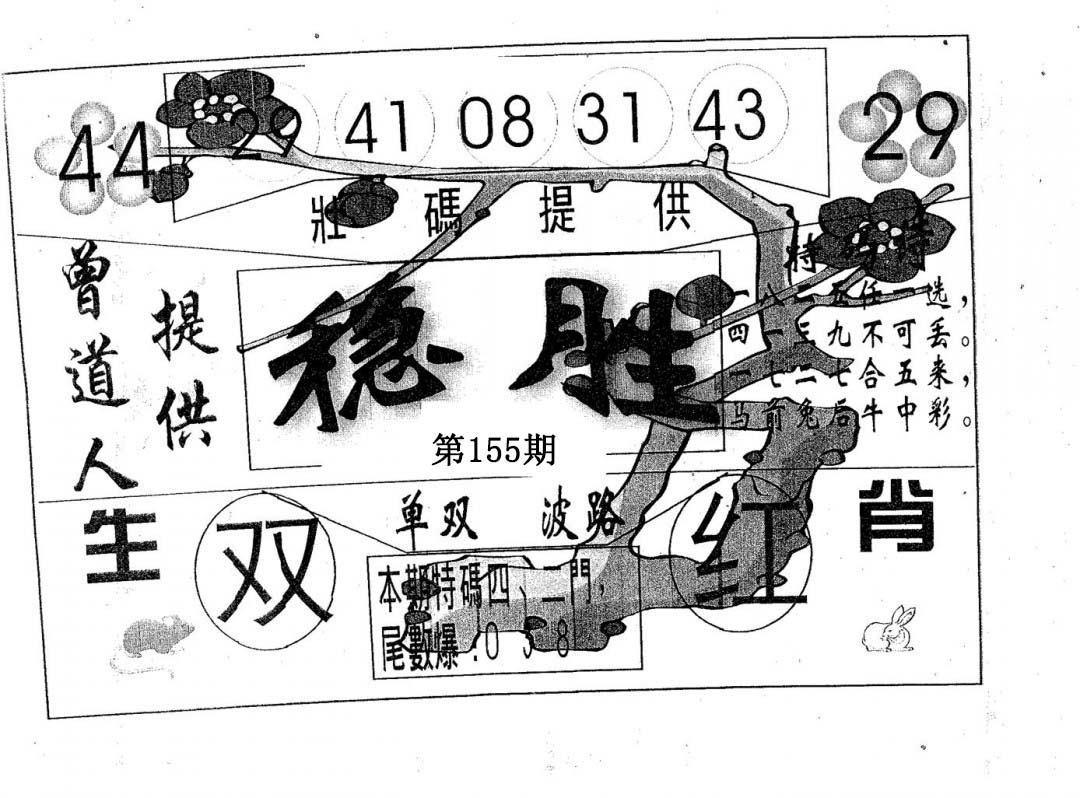 44 29 41 08 31 43 29
壯碼提供
曾道人
提供
稳胜
第155期
特码诗
一八二五任一选，
四一三九不可丢。
一七二七合五来，
马前兔后牛中彩。
生肖
单双 波路
双 红
本期特碼四、二門，
尾數爆:0 3 8